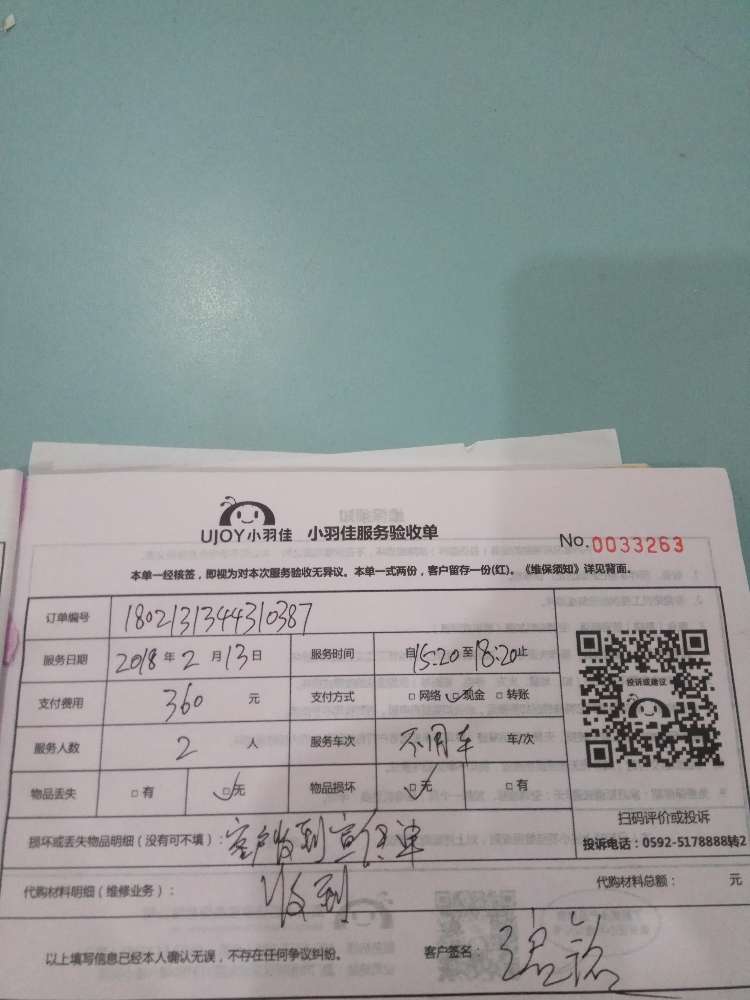 UJOY小羽佳 小羽佳服务验收单
No.0033263
本单一经核签，即视为对本次服务验收无异议。本单一式两份，客户留存一份(红)。《维保须知》详见背面。
订单编号 1802131344310387
服务日期 2018年2月13日 服务时间 自15:20至18:20止
支付费用 360 元 支付方式 □网络 □现金 □转账
服务人数 2 人 服务车次 不用车 车/次
物品丢失 □有 □无 物品损坏 □无 □有
投诉或建议
扫码评价或投诉
投诉电话：0592-5178888转2
损坏或丢失物品明细（没有可不填）：客户收到宣传单
代购材料明细（维修业务）： 收到 代购材料总额： 元
以上填写信息已经本人确认无误，不存在任何争议纠纷。 客户签名：